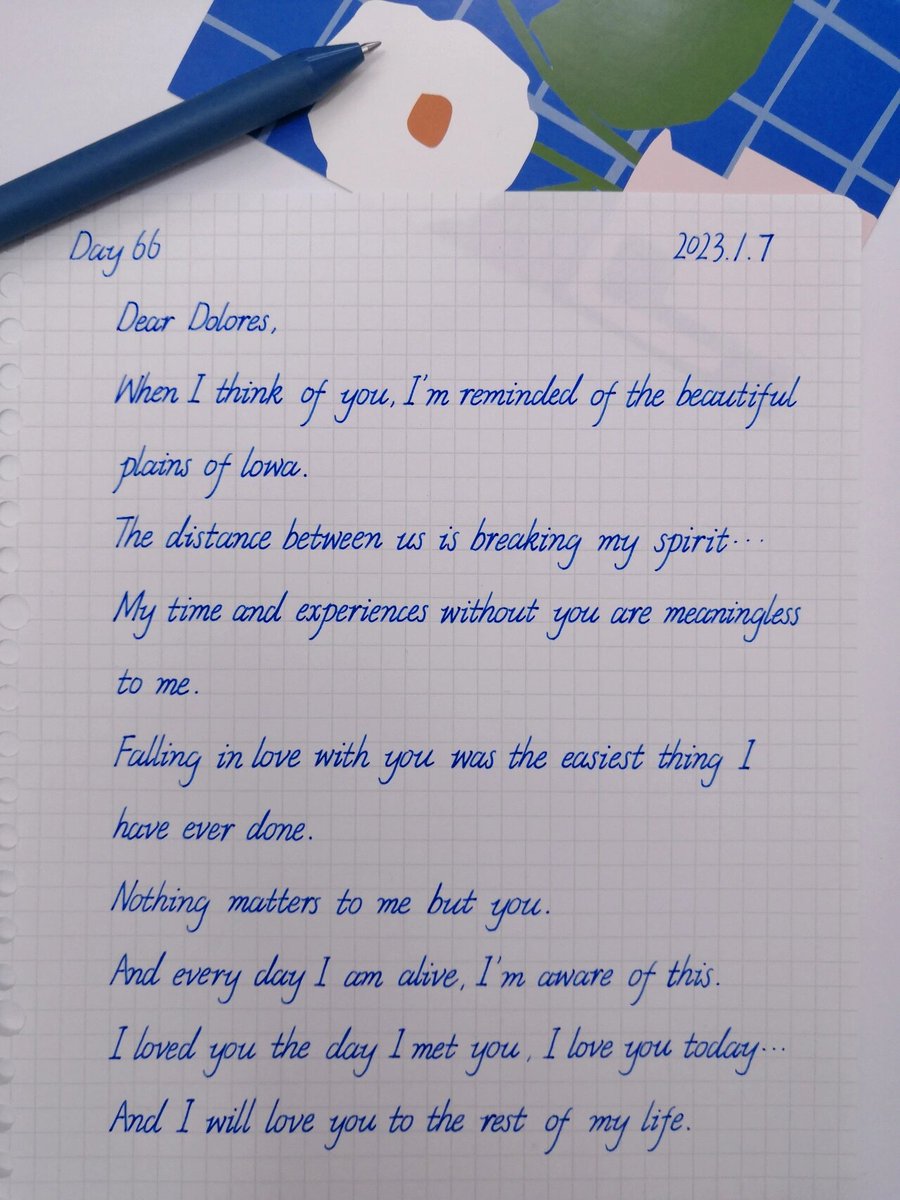 Day 66 2023.1.7
Dear Dolores,
When I think of you, I'm reminded of the beautiful
plains of Iowa.
The distance between us is breaking my spirit...
My time and experiences without you are meaningless
to me.
Falling in love with you was the easiest thing I
have ever done.
Nothing matters to me but you.
And every day I am alive, I'm aware of this.
I loved you the day I met you, I love you today...
And I will love you to the rest of my life.